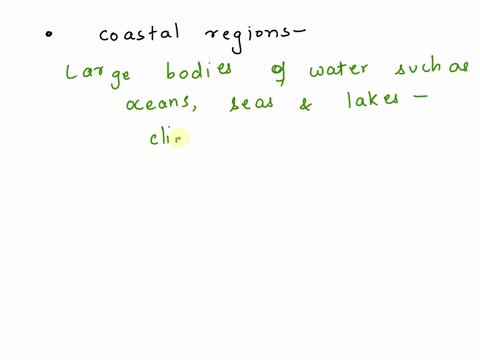 • coastal regions-
Large bodies of water such as
oceans, seas & lakes -
clin